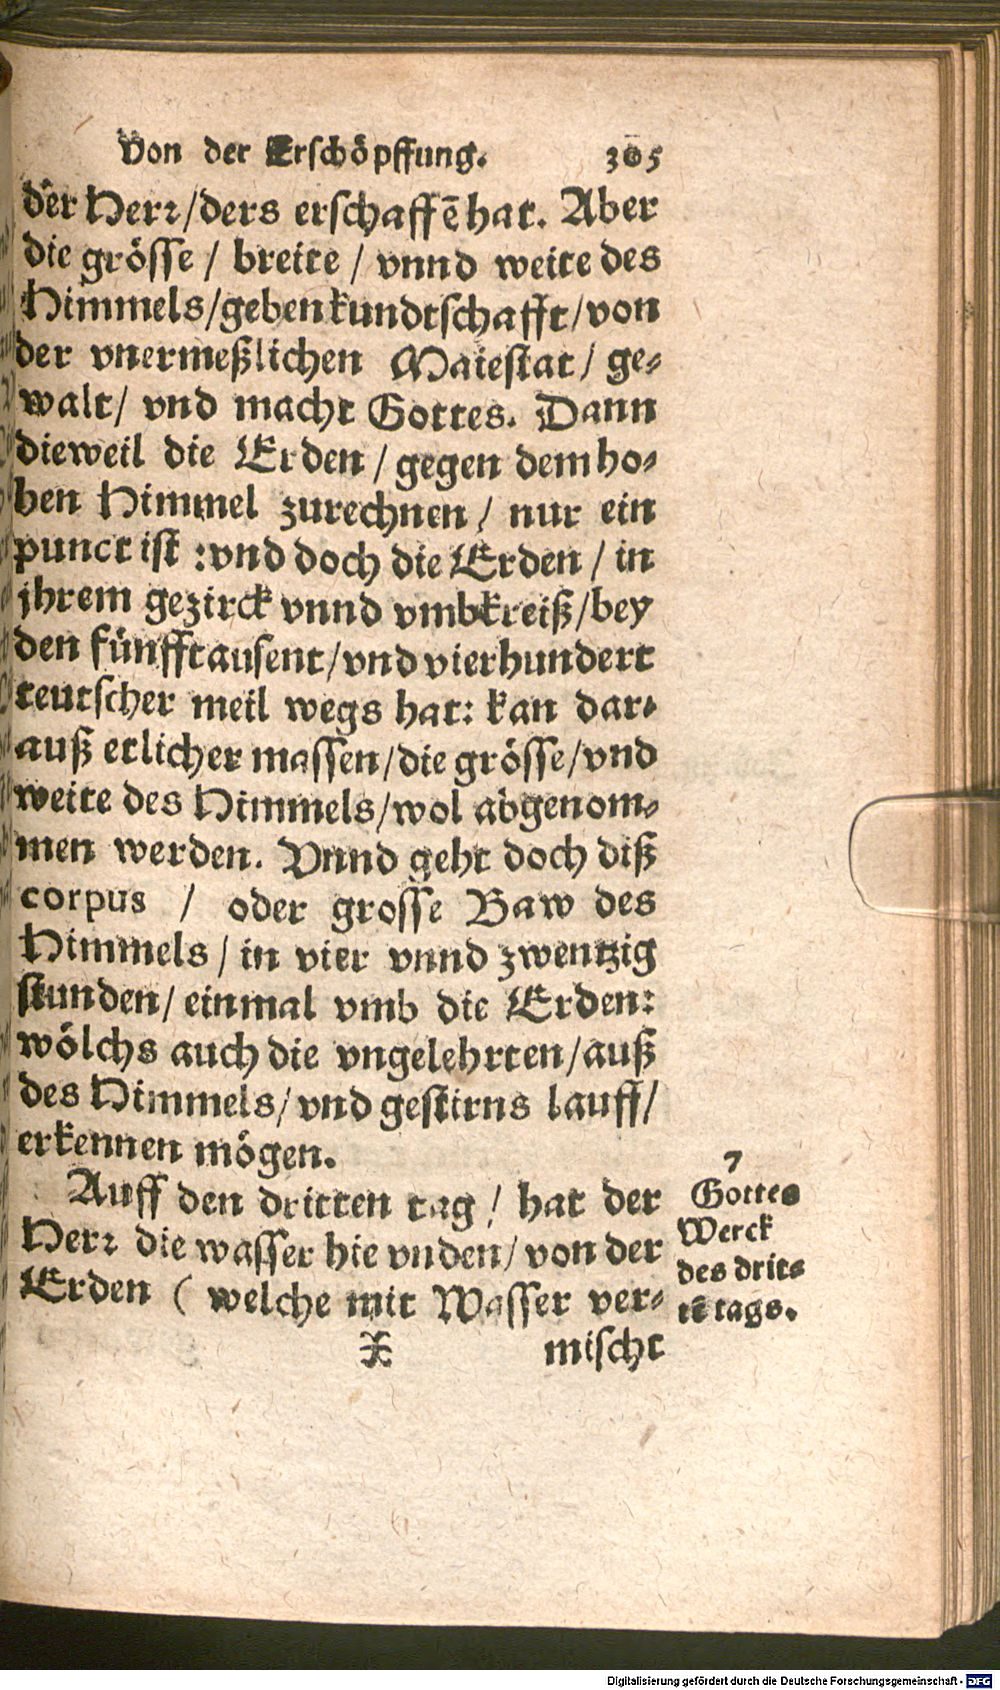 Von der Erschöpffung. 305
der Herr/ders erschaffē hat. Aber
die grösse / breite / vnnd weite des
Himmels/geben kundtschafft/von
der vnermeßlichen Maiestat/ ge-
walt/ vnd macht Gottes. Dann
dieweil die Erden / gegen dem ho-
hen Himmel zurechnen / nur ein
punct ist :vnd doch die Erden / in
jhrem gezirck vnnd vmbkreiß/bey
den fünfftausent/vnd vierhundert
teutscher meil wegs hat: kan dar-
auß etlicher massen/die grösse/vnd
weite des Himmels/wol abgenom-
men werden. Vnnd geht doch diß
corpus / oder grosse Baw des
Himmels/ in vier vnnd zwentzig
stunden/ einmal vmb die Erden:
wölchs auch die vngelehrten/auß
des Himmels/ vnd gestirns lauff/
erkennen mögen.
Auff den dritten tag/ hat der
Herr die wasser hie vnden/ von der
Erden ( welche mit Wasser ver-
X mischt
7
Gottes
Werck
des drit-
tē tags.
Digitalisierung gefördert durch die Deutsche Forschungsgemeinschaft - DFG